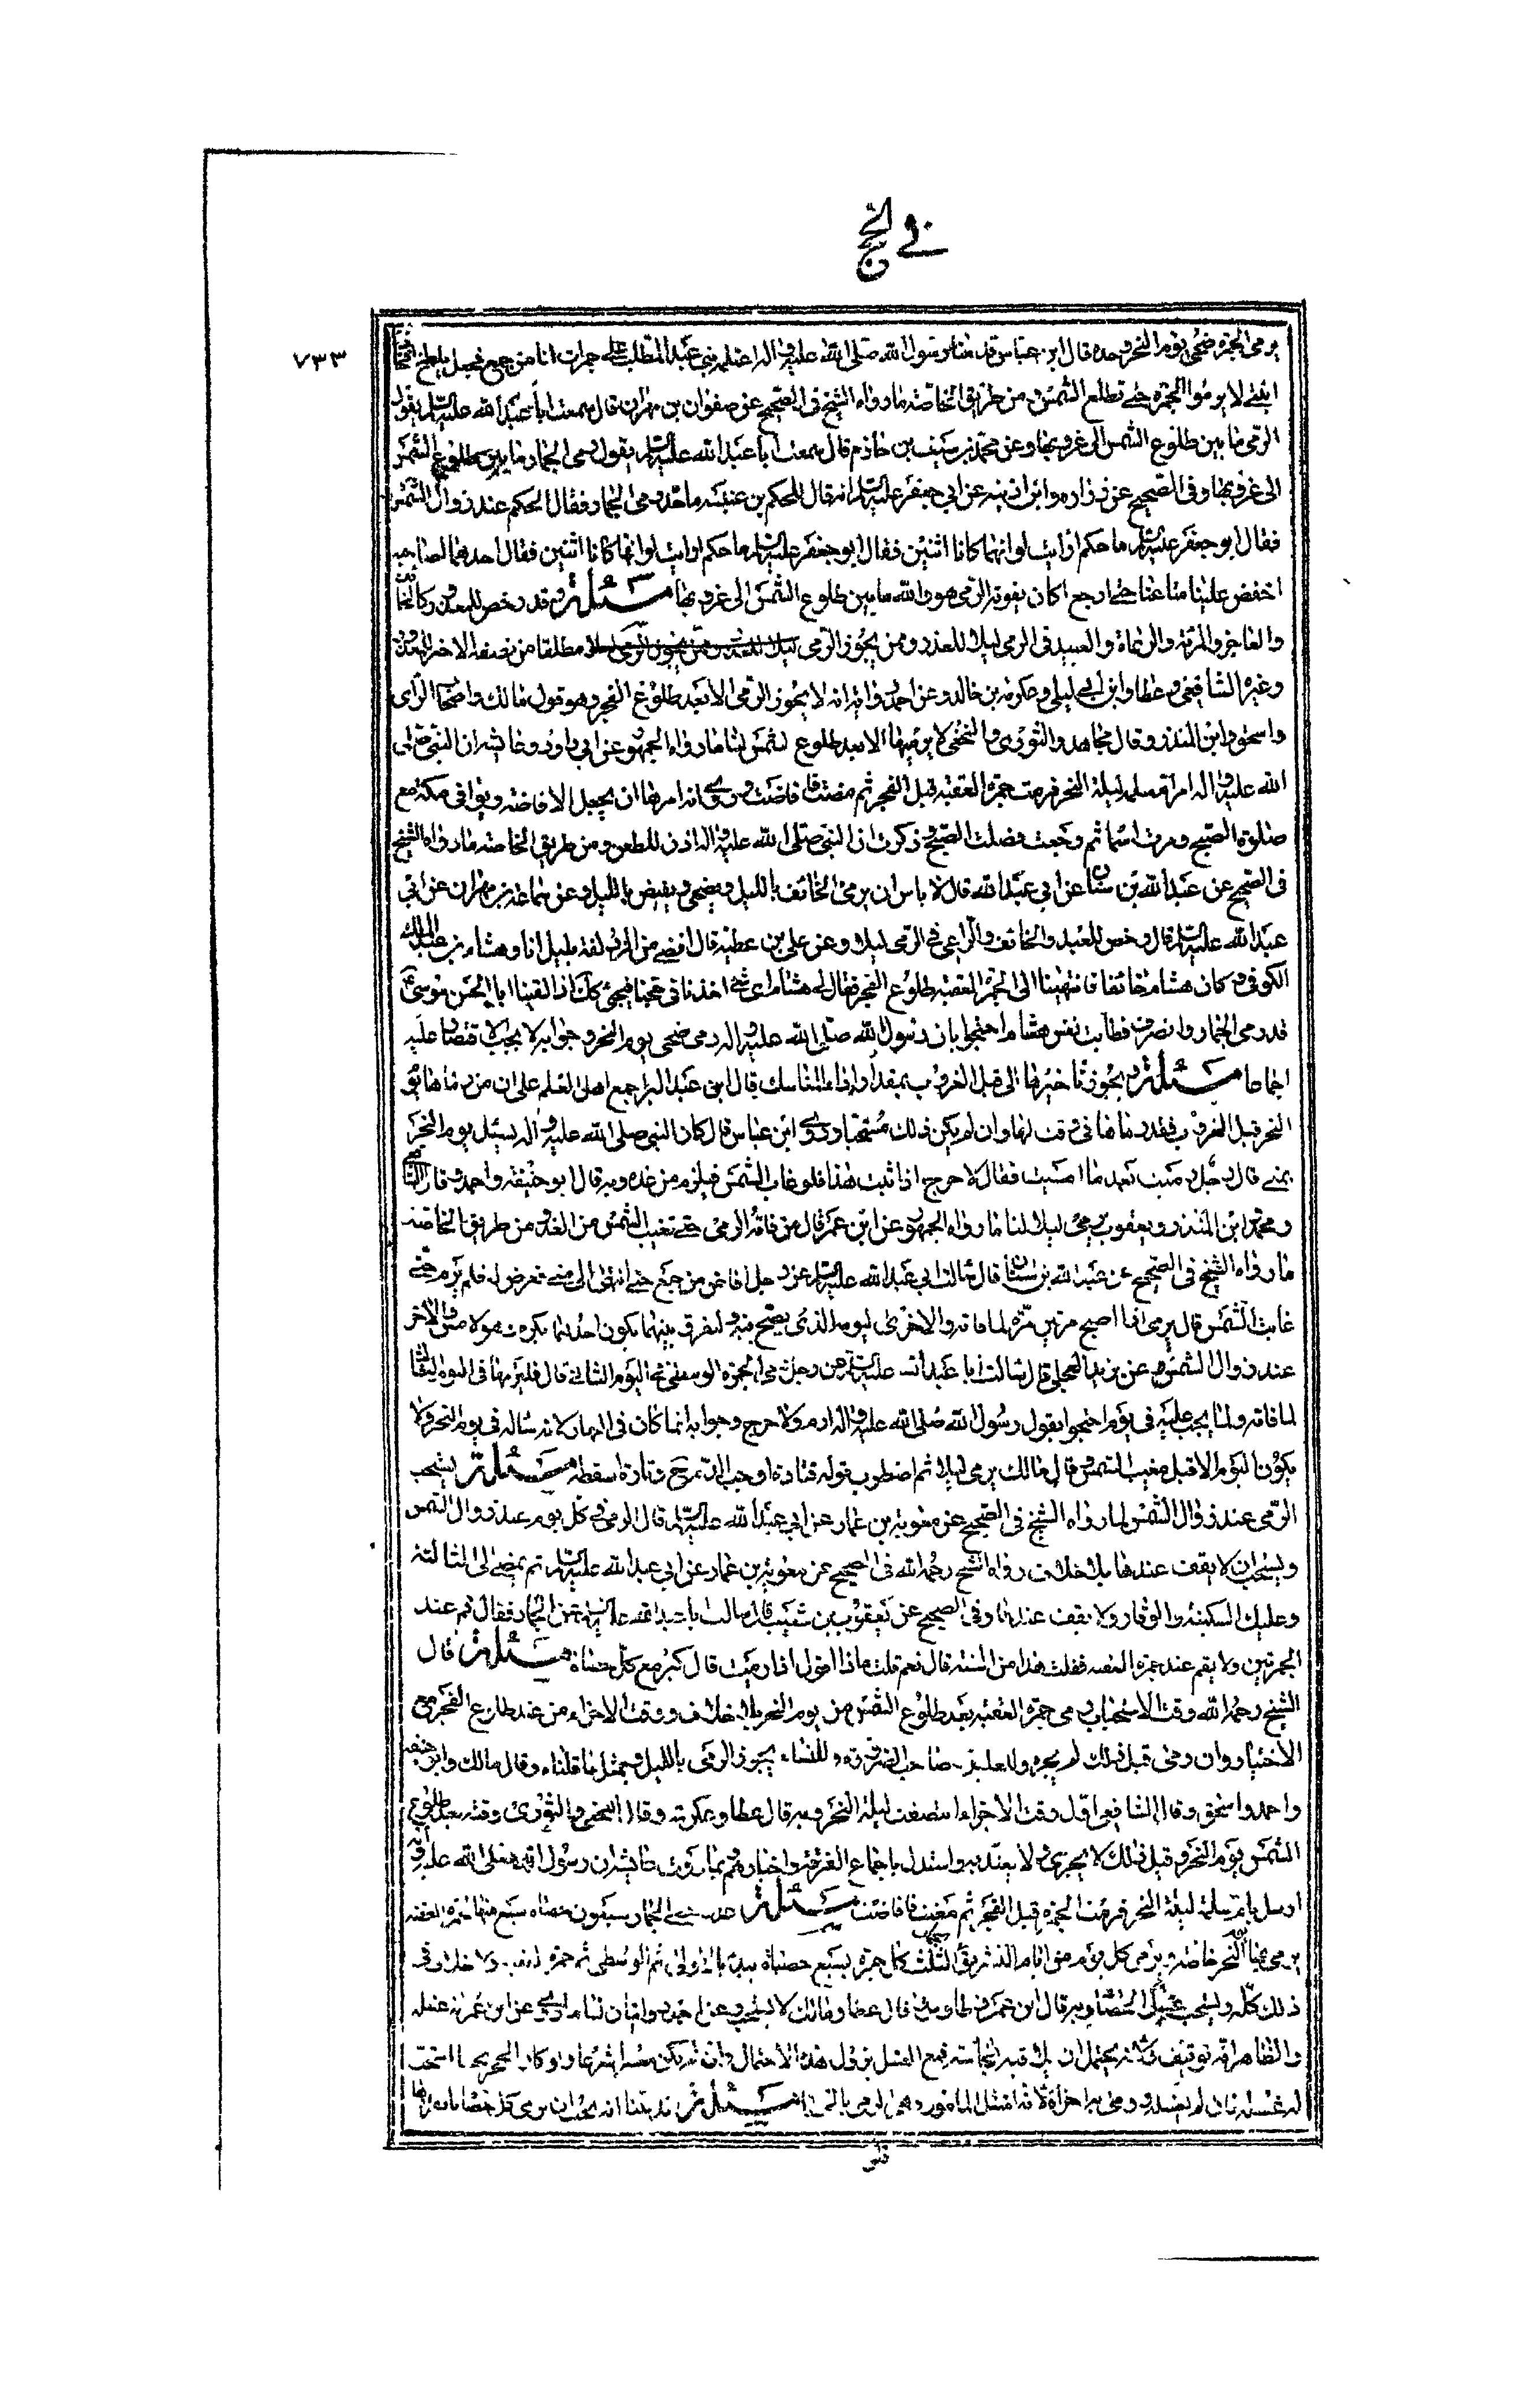 في الحج
٧٣٣
يرمي الجمرة ضحى يوم النحر وحده قال ابن عباس قدمنا رسول الله صلى الله عليه واله اغيلمة بني عبد المطلب على جمرات لنا من جمع فجعل يلطخ افخاذنا
ابيني لا ترموا الجمرة حتى تطلع الشمس ومن طريق الخاصة ما رواه الشيخ في الصحيح عن صفوان بن مهران قال سمعت ابا عبد الله عليه السلم يقول
الرمي ما بين طلوع الشمس الى غروبها وعن محمد بن سيف بن حازم قال سمعت ابا عبد الله عليه السلم يقول رمي الجمار ما بين طلوع الشمس
الى غروبها وفي الصحيح عن زراره وابن اذينه عن ابي جعفر عليه السلم انه قال للحكم بن عتيبه ما حد رمي الجمار فقال الحكم عند زوال الشمس
فقال ابو جعفر عليه السلم يا حكم ارايت لو انهما كانا اثنين فقال ابو جعفر عليه السلم يا حكم ارايت لو انهما كانا اثنين فقال احدهما لصاحبه
احفض علينا متاعنا حتى ارجع اكان يفوته الرمي هو والله ما بين طلوع الشمس الى غروبها مسئلة وقد رخص للمعذور كالخائف
والعاجز والمرئة والرعاة والعبيد في الرمي ليلا للعذر ومن يجوز الرمي ليلا مطلقا من نصفه الاخر للمعذور
وغيره الشافعي وعطا وابن ابي ليلى وعكرمة بن خالد وعن احمد رواية انه لا يجوز الرمي الا بعد طلوع الفجر وهو قول مالك واصحاب الراي
واسحق وابن المنذر وقال مجاهد والثوري والنخعي لا يرميها الا بعد طلوع الشمس لنا ما رواه الجمهور عن ابي داود وعائشه ان النبي صلى
الله عليه واله امر ام سلمه ليلة النحر فرمت جمرة العقبه قبل الفجر ثم مضت فافاضت وروي انه امرها ان يعجل الافاضه ويوافي مكة مع
صلوة الصبح ورمت اسما ثم رجعت فصلت الصبح وذكرت ان النبي صلى الله عليه واله اذن للظعن ومن طريق الخاصه ما رواه الشيخ
في الصحيح عن عبد الله بن سنان عن ابي عبد الله قال لا باس ان يرمي الخائف بالليل ويضحي ويفيض بالليل وعن سماعة بن مهران عن ابي
عبد الله عليه السلم قال رخص للعبد والخائف والراعي في الرمي ليلا وعن علي بن عطيه قال افضنا من المزدلفة بليل انا وهشام بن عبد الملك
الكوفي وكان هشام خائفا فانتهينا الى الجمرة العقبه طلوع الفجر فقال له هشام اي شي احدثنا في حجنا فنحن كك اذ لقينا ابا الحسن موسى ع
قد رمى الجمار وانصرف فطابت نفس هشام احتجوا بان رسول الله صلى الله عليه واله رمى ضحى يوم النحر وجوابه لا يجب الاقتصار عليه
اجماعا مسئلة ويجوز تاخيرها الى قبل الغروب بمقدار اداء المناسك قال ابن عبد البر اجمع اهل العلم على ان من رماها يوم
النحر قبل الغروب فقد رماها في وقت لها وان لم يكن ذلك مستحبا وروي ابن عباس قال كان النبي صلى الله عليه واله يسئل يوم النحر
بمنى قال رجل رميت بعد ما امسيت فقال لا حرج اذا ثبت هذا فلو غابت الشمس فيلزم من غده وبه قال ابو حنيفه واحمد وقال الشافعي
ومحمد ابن المنذر ويعقوب يرمي ليلا لنا ما رواه الجمهور عن ابن عمر قال من فاته الرمي حتى تغيب الشمس من الغد ومن طريق الخاصه
ما رواه الشيخ في الصحيح عن عبد الله بن سنان قال سالت ابي عبد الله عليه السلم عن رجل افاض من جمع حتى انتهى الى منى فعرض له فلم يرم حتى
غابت الشمس قال يرمي اذا اصبح مرتين مرة لما فاته والاخرى ليومه الذي يصبح فيه وليفرق بينهما يكون احدهما بكرة وهو لامس والاخر
عند زوال الشمس وعن بريد العجلي قال سالت ابا عبد الله عليه السلم عن رجل نسي رمي الجمرة الوسطى في اليوم الثاني قال فليرمها في اليوم الثالث
لما فاته ولما يجب عليه في يومه احتجوا بقول رسول الله صلى الله عليه واله ارم ولا حرج وجوابه انما كان في النهار لانه سئاله في يوم النحر ولا
يكون اليوم الا قبل مغيب الشمس وقال مالك يرمي ليلا ثم اضطرب قوله فتارة اوجب الدم ح وتارة اسقطه مسئلة يستحب
الرمي عند زوال الشمس لما رواه الشيخ في الصحيح عن معوية بن عمار عن ابي عبد الله عليه السلم قال ارم في كل يوم عند زوال الشمس
ويستحب ان لا يقف عندها بلا خلاف رواه الشيخ رحمه الله في الصحيح عن معوية بن عمار عن ابي عبد الله عليه السلم ثم يمضي الى الثالثة
وعليك السكينة والوقار ولا يقف عندها وفي الصحيح عن يعقوب بن شعيب قال سالت ابا عبد الله عليه السلم عن الجمار فقال قم عند
الجمرتين ولا يقم عند جمرة العقبه فقلت هذا من السنه قال نعم قلت ماذا اقول اذا رميت قال كبر مع كل حصاة مسئلة قال
الشيخ رحمه الله وقت الاستحباب رمي جمرة العقبه بعد طلوع الشمس من يوم النحر بلا خلاف ووقت الاجزاء من عند طلوع الفجر مع
الاختيار وان رمى قبل ذلك لم يجزه وللعليل صاحب الضرورة وللنساء يجوز الرمي بالليل وبمثل ما قلناه وقال مالك وابو حنيفه
واحمد واسحق وقال الشافعي اول وقت الاجزاء انتصف ليلة النحر وبه قال عطا وعكرمه وقال النخعي والثوري وقته بعد طلوع
الشمس يوم النحر وقبل ذلك لا يجزي ولا يعتد به واستدل باجماع الفرقة واخبارهم بما روت عائشه ان رسول الله صلى الله عليه واله
ارسل بام سلمة ليلة النحر فرمت الجمرة قبل الفجر ثم مضت فافاضت مسئلة حصى الجمار سبعون حصاه سبع منها لجمرة العقبه
يرمي بها يوم النحر خاصة ويرمي كل يوم من ايام التشريق الثلث كل جمرة بسبع حصياة يبدء بالاولى ثم الوسطى ثم جمرة العقبه ولا خلاف في
ذلك كله ويستحب غسل الحصا وبه قال ابن عمر وطاوس وقال عطا ومالك لا يستحب وعن احمد روايتان لنا ما روي عن ابن عمر انه غسله
والظاهر انه توقيف ولانه يحتمل ان يلاقيه نجاسة فمع الغسل يزول هذا الاحتمال وان لم يكن معتبرا شرعا ولو كان الحجر نجسا استحب
له غسله فان لم يغسله ورمى به اجزاه لانه امتثل المامور به وهو الرمي بالحصا مسئلة قد بينا انه يجب ان يرمي كل حصاة بانفرادها